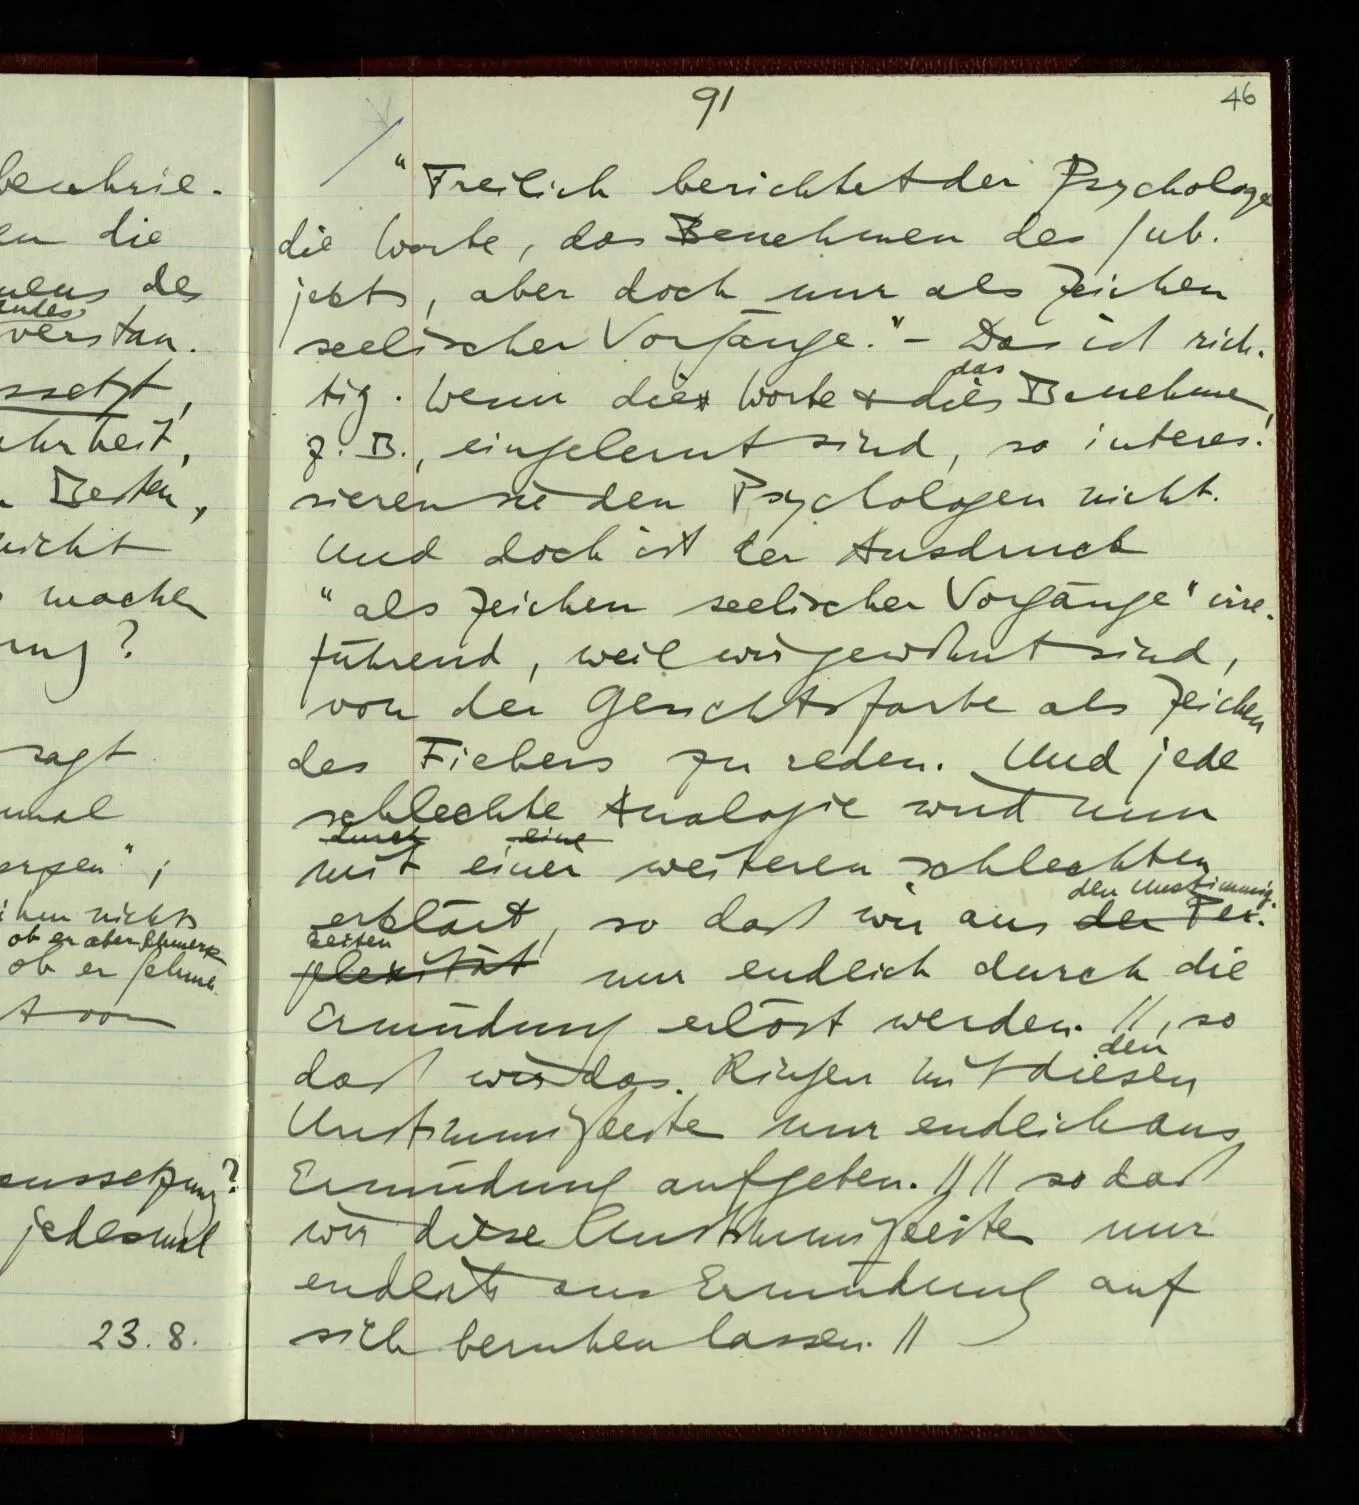 beschrie-
en die
mens des
verstan-
ssetzt,
ahrheit,
Besten,
nicht
machen
ung?
sagt
mal
orgen";
ihm nichts
ob er aber Schmerz
ob er Schme-
von
aussetzung?
jedesmal
23.8.
91
46
"Freilich berichtet der Psychologe
die Worte, das Benehmen des Sub-
jekts, aber doch nur als Zeichen
seelischer Vorgänge." – Das ist rich-
das
tig. Wenn die Worte & dies Benehmen,
z.B., eingelernt sind, so interes-
sieren sie den Psychologen nicht.
Und doch ist der Ausdruck
"als Zeichen seelischer Vorgänge" irre-
führend, weil wir gewöhnt sind,
von der Gesichtsfarbe als Zeichen
des Fiebers zu reden. Und jede
schlechte Analogie wird nun
durch eine
mit einer weiteren schlechten
den Unstimmig-
erklärt, so daß wir aus der Per-
keiten
plexität nur endlich durch die
Ermüdung erlöst werden. //, so
den
daß wir das Ringen mit diesen
Unstimmigkeiten nur endlich aus
Ermüdung aufgeben. // // so daß
wir diese Unstimmigkeiten nur
endlich aus Ermüdung auf
sich beruhen lassen. //